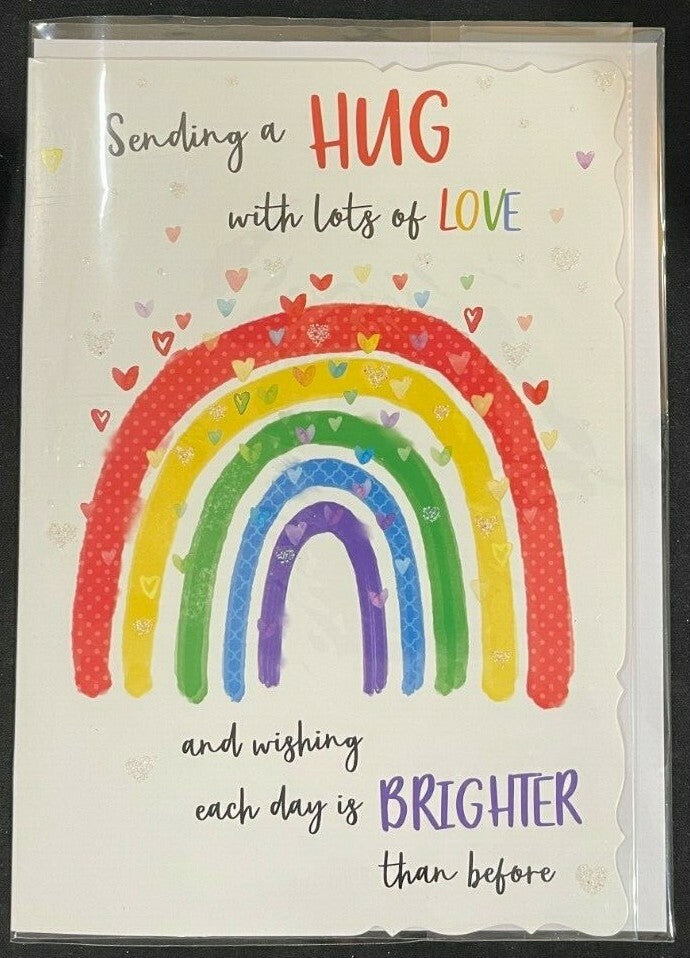 Sending a HUG
with lots of LOVE
and wishing
each day is BRIGHTER
than before